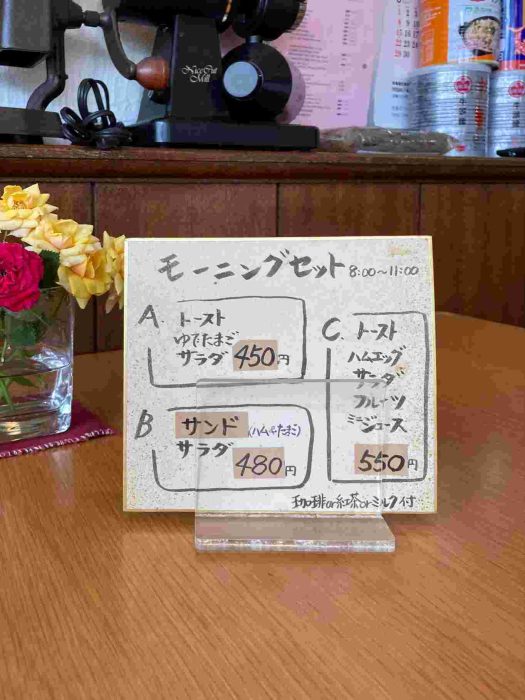 NiceCut
Mill
モーニングセット 8:00~11:00
A. トースト
ゆでたまご
サラダ 450円
B サンド (ハムorたまご)
サラダ
480円
C. トースト
ハムエッグ
サラダ
フルーツ
ミニジュース
550円
珈琲or紅茶orミルク付